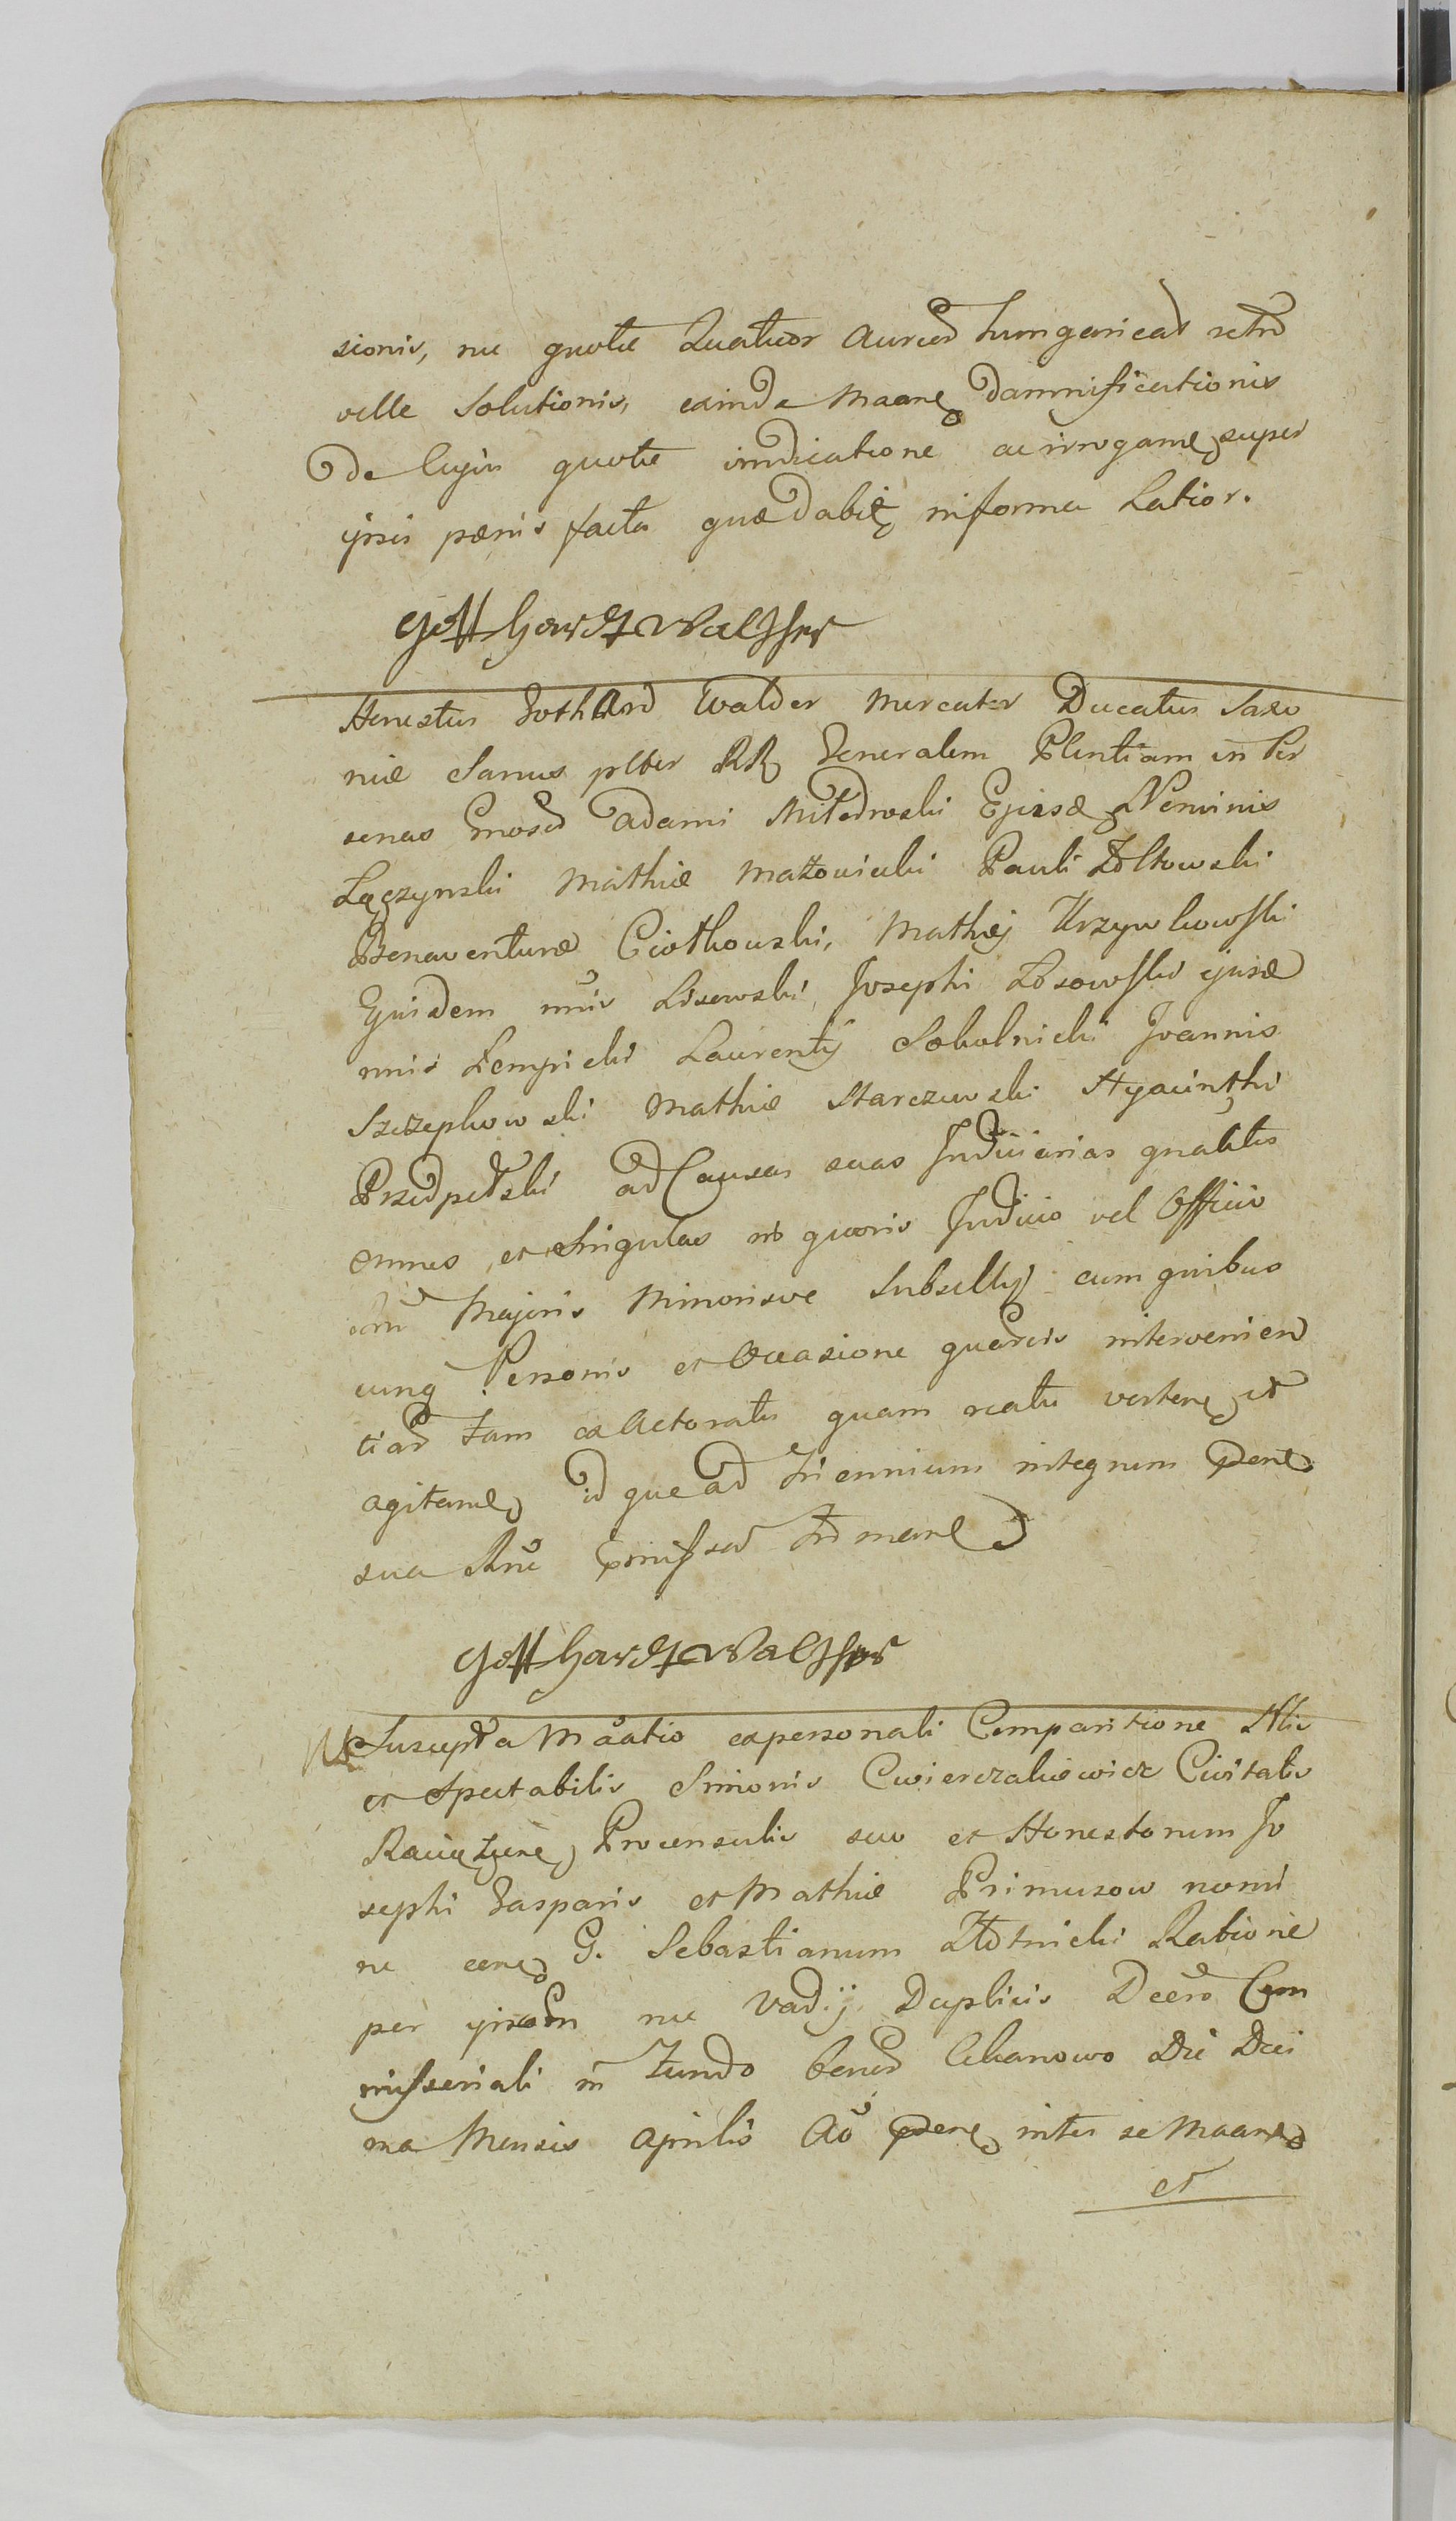 sionis, nu quote Quatuor Aureos hungaricat
velle Solutionis, exinde Maane damnificationis
de Cujus quote indicatione ac irrogame super
ipsis pænis facta quædabit informa Latior.
Gotthardt Walther
Honestus Gothard Walder Mercator Ducatus Saxo
niæ Sanus plbr RR Generalem Plentiam in Per
sonas Adami Ejusd Nominis
Łączynski Mathiæ Mazowiecki Pauli Zołtowski
Bonaventuræ Ciotkowski, Mathiæ Krzywkowski
Ejusdem nnis Lisowski, Josephi Łosowski ejusd
nnis Łempicki Laurentij Sokolnicki Joannis
Szczepkowski Mathiæ Starczewski Hyacinthi
Przedpełski ad Causas suas Judiciarias
omnes et Singulas in quovis Judicio vel Officio
Majoris Minorisve Subsellij cum quibus
cunq Personis et Occasione quarcis intervenien
tiar tam ex Actoratu quam reatu vertene et
agitane id que ad Triennium integrum
sua Rne
Gotthardt Walther
Suscepta Maatio ex personali Comparitione
et Spectabilis Simonis Cwierczakiewicz Civitatis
Proconsulis suo et Honestorum Jo
sephi Gasparis et Mathiæ Primusow nomi
ne G. Sebastianum Złotnicki Ratione
per ipsum nu Vadij Duplicis Com
missoriali in fundo bonor Die Deci
ma Mensis Aprilis Ao inter se Maane
et